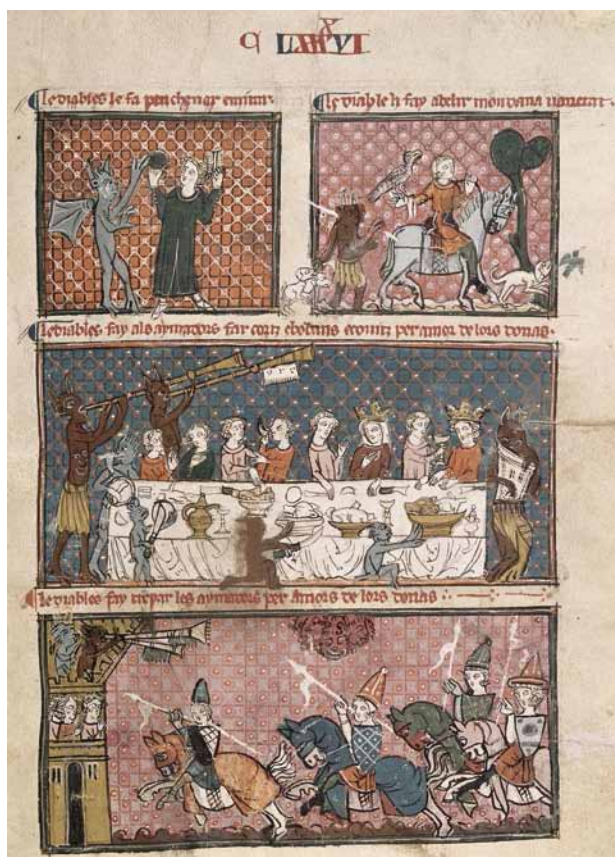 le diables le fa penchenar emirar·
le diable li fay abelir mondana vanetat·
le diables fay als aymadors far cortz ebobans ecovitz per amor de lors donas·
le diables fay trepar les aymadors per amors de lors donas